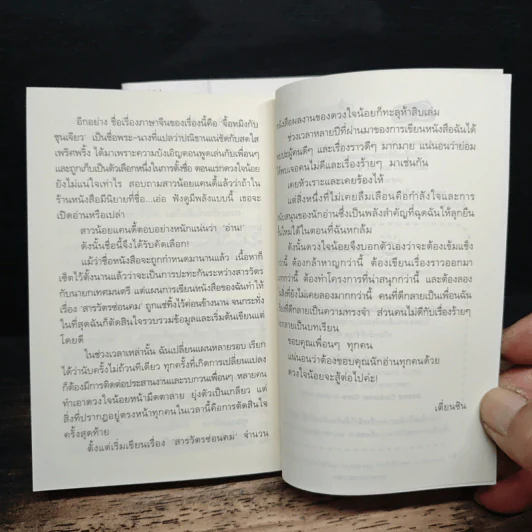 อีกอย่าง ชื่อเรื่องภาษาจีนของเรื่องนี้คือ 'จื้อหมิงกับ
ชุนเจียว' เป็นชื่อพระ-นางที่แปลว่าปณิธานแน่ชัดกับสดใส
เพริศพริ้ง ได้มาเพราะความบังเอิญตอนพูดเล่นกับเพื่อนๆ
และถูกเก็บเป็นตัวเลือกหนึ่งในการตั้งชื่อ ตอนแรกดวงใจน้อย
ยังไม่แน่ใจเท่าไร สอบถามสาวน้อยแคนดี้แล้วว่าถ้าใน
ร้านหนังสือมีนิยายที่ชื่อ...เอ่อ ฟังดูมีพลังแบบนี้ เธอจะ
เปิดอ่านหรือเปล่า
สาวน้อยแคนดี้ตอบอย่างหนักแน่นว่า 'อ่าน!'
ดังนั้นชื่อนี้จึงได้รับคัดเลือก!
แม้ว่าชื่อหนังสือจะถูกกำหนดมานานแล้ว เนื้อหาก็
เซ็ตไว้ตั้งนานแล้วว่าจะเป็นการปะทะกันระหว่างสารวัตร
กับนายกเทศมนตรี แต่แผนการเขียนหนังสือของฉันทำให้
เรื่อง 'สารวัตรซ่อนคม' ถูกแช่แข็งไว้ค่อนข้างนาน จนกระทั่ง
ในที่สุดฉันก็ตัดสินใจรวบรวมข้อมูลและเริ่มต้นเขียนแต่
โดยดี
ในช่วงเวลาเหล่านั้น ฉันเปลี่ยนแผนหลายรอบ เรียก
ได้ว่านับครั้งไม่ถ้วนทีเดียว ทุกครั้งที่เกิดการเปลี่ยนแปลง
ก็ต้องมีการติดต่อประสานงานและรบกวนเพื่อนๆ หลายคน
ทำเอาดวงใจน้อยหน้ามืดตาลาย ยุ่งตัวเป็นเกลียว แต่
สิ่งที่ปรากฏอยู่ตรงหน้าทุกคนในเวลานี้คือการตัดสินใจ
ครั้งสุดท้าย
ตั้งแต่เริ่มเขียนเรื่อง 'สารวัตรซ่อนคม' จำนวน
ผลงานของดวงใจน้อยก็ทะลุห้าสิบเล่ม
ช่วงเวลาหลายปีที่ผ่านมาของการเขียนหนังสือฉันได้
ผู้คนดีๆ และเรื่องราวดีๆ มากมาย แน่นอนว่าย่อม
คนไม่ดีและเรื่องร้ายๆ มาเช่นกัน
เคยหัวเราะและเคยร้องไห้
แต่สิ่งหนึ่งที่ไม่เคยลืมเลือนคือกำลังใจและการ
สนับสนุนของนักอ่านซึ่งเป็นพลังสำคัญที่ฉุดฉันให้ลุกยืน
ใหม่ได้ในตอนที่ฉันหกล้ม
ดังนั้นดวงใจน้อยจึงบอกตัวเองว่าจะต้องเข้มแข็ง
กว่านี้ ต้องกล้าหาญกว่านี้ ต้องเขียนเรื่องราวออกมา
มากกว่านี้ ต้องทำโครงการที่น่าสนุกกว่านี้ และต้องลอง
สิ่งที่ยังไม่เคยลองมากกว่านี้ คนที่ดีกลายเป็นเพื่อนฉัน
กลายเป็นความทรงจำ ส่วนคนไม่ดีกับเรื่องร้ายๆ
กลายเป็นบทเรียน
ขอบคุณเพื่อนๆ ทุกคน
แน่นอนว่าต้องขอบคุณนักอ่านทุกคนด้วย
ดวงใจน้อยจะสู้ต่อไปค่ะ!
เตี่ยนซิน